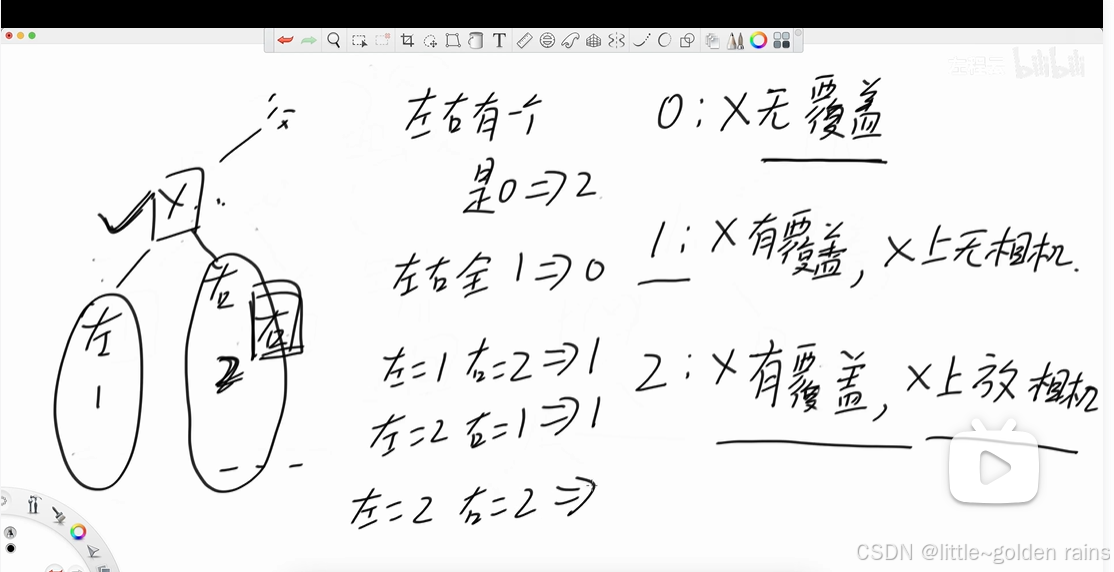 左右有一个
是0⇒2
左右全1⇒0
左=1 右=2⇒1
左=2 右=1⇒1
左=2 右=2⇒
0:X无覆盖
1:X有覆盖,X上无相机.
2:X有覆盖,X上放相机
X
左
1
右
2
T
bilibili
CSDN @little~golden rains